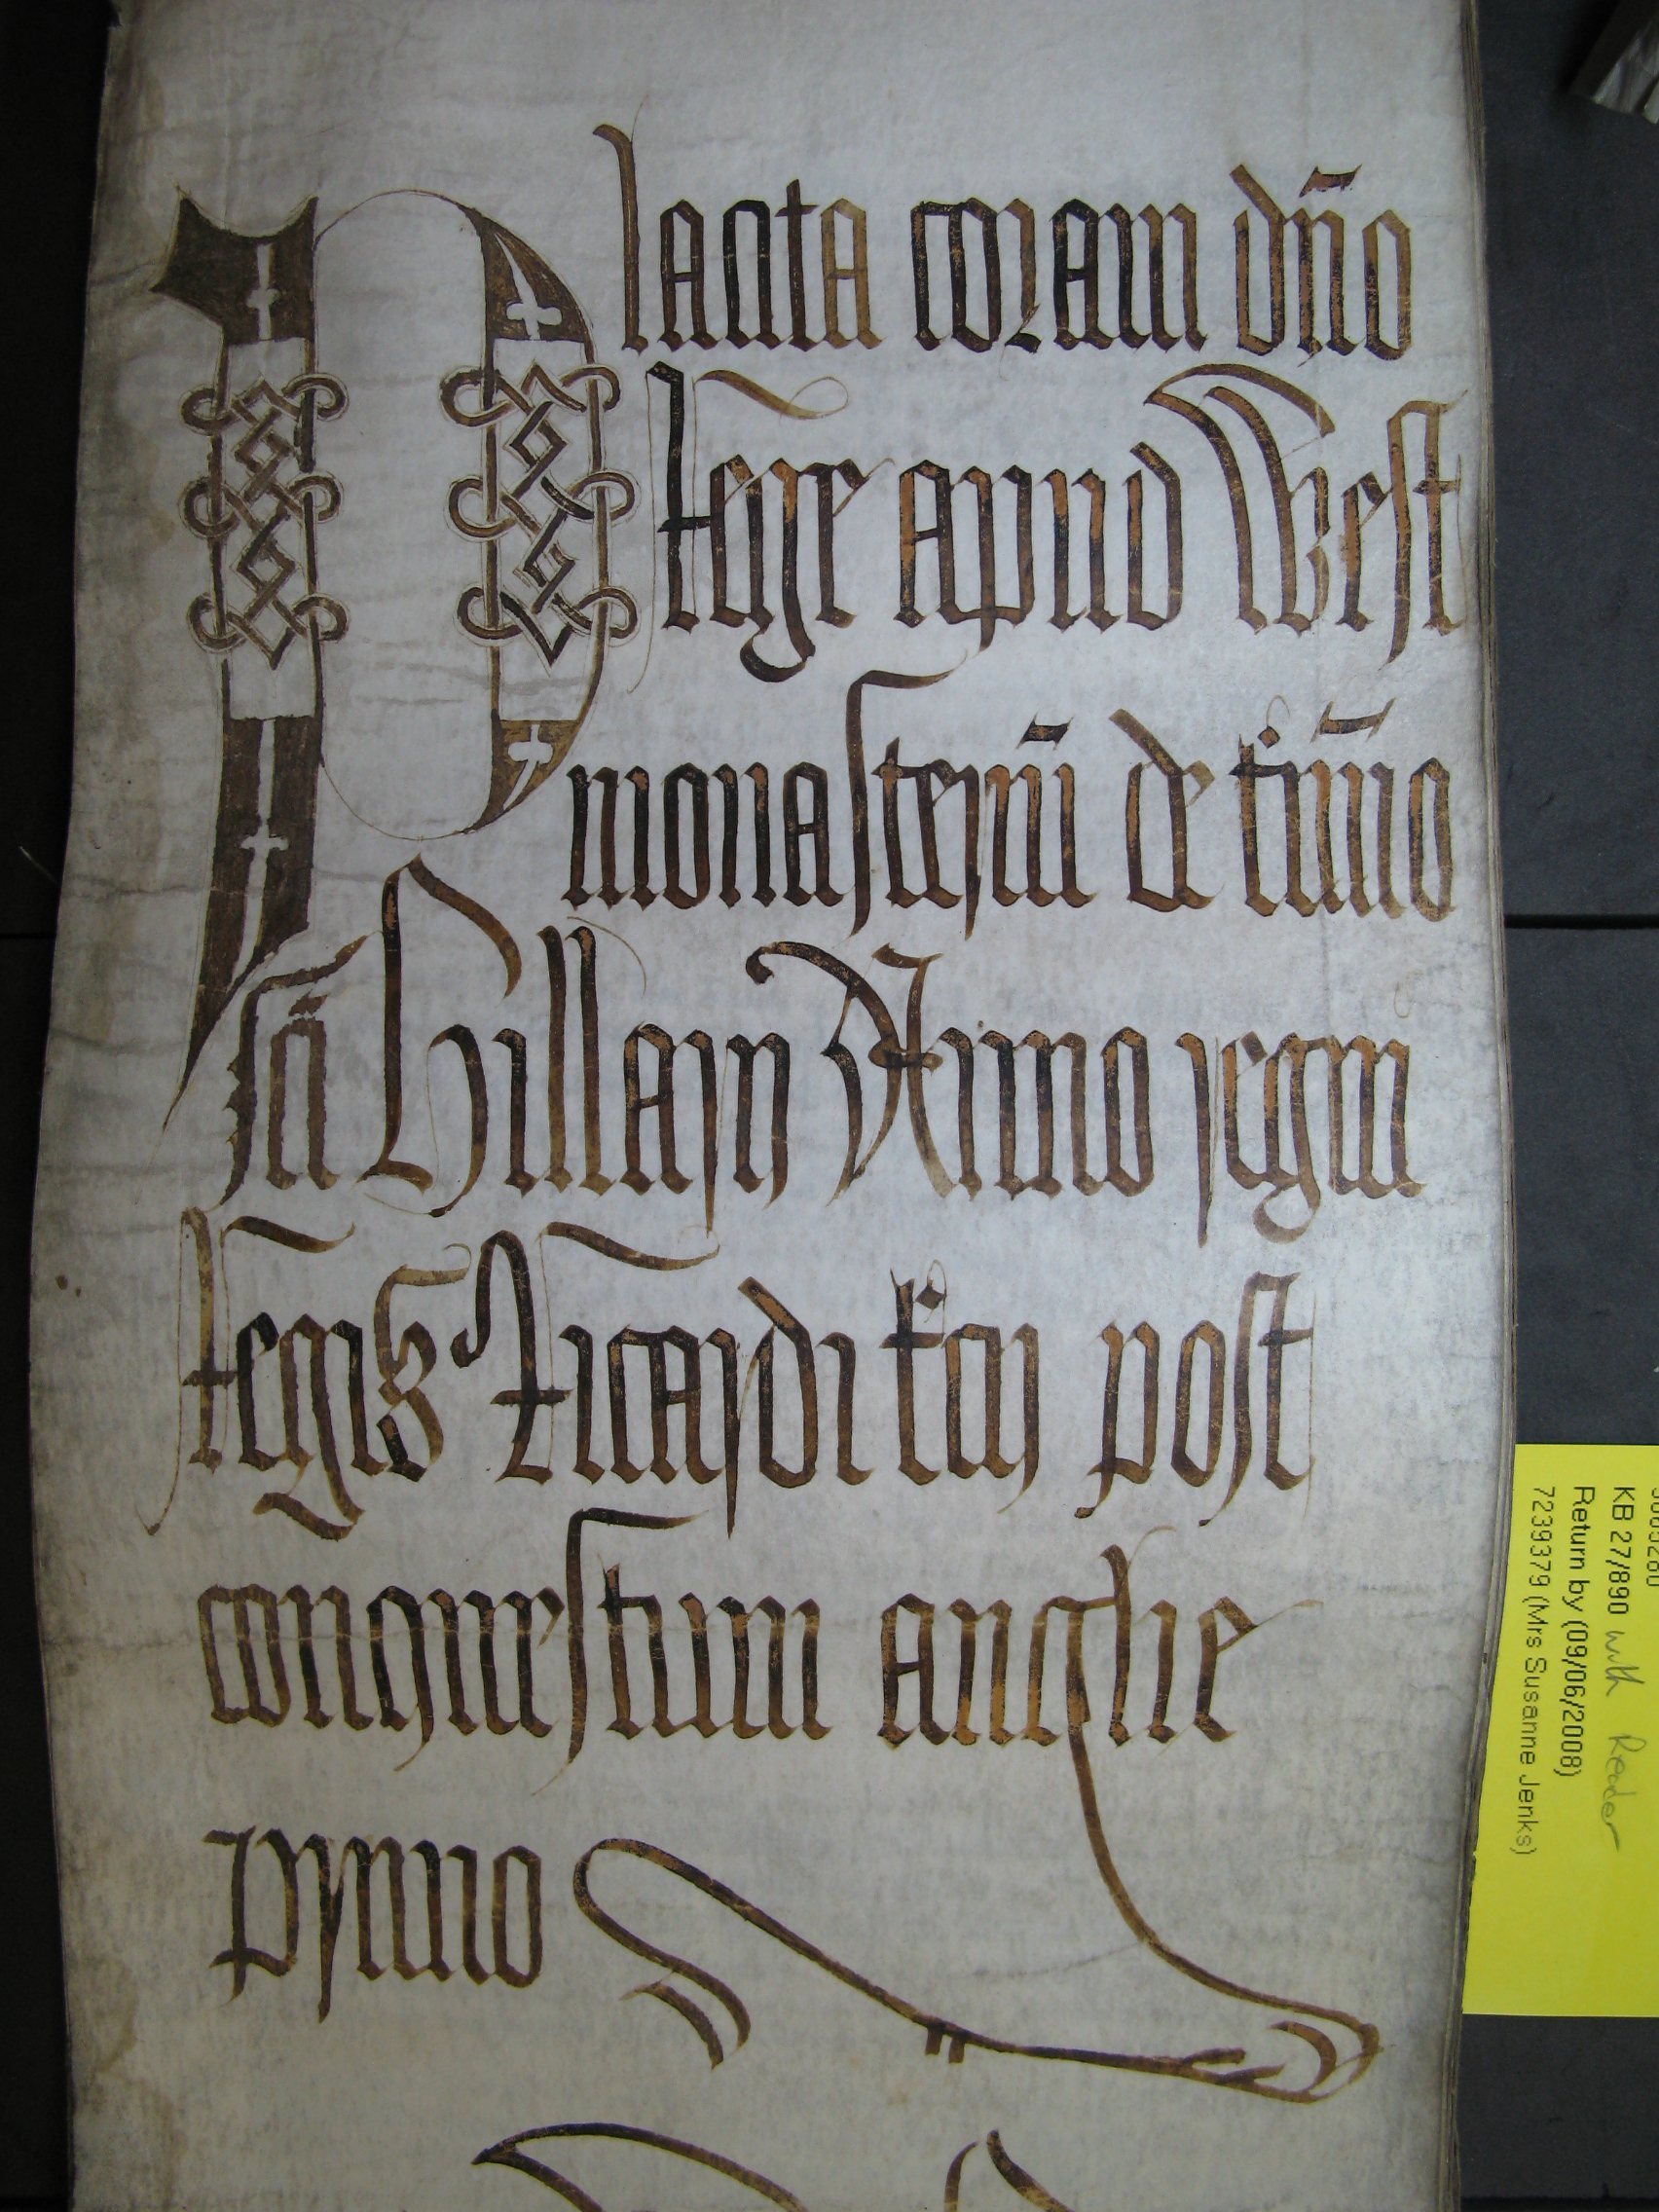 Placita coram dño
Rege apud West
monasteriũ de t'mĩno
sc̃i Hillarij Anno regni
Regis Ricardi t'cij post
conquestum anglie
primo
KB 27/890 with Reader
Return by (09/06/2008)
7239379 (Mrs Susanne Jenks)